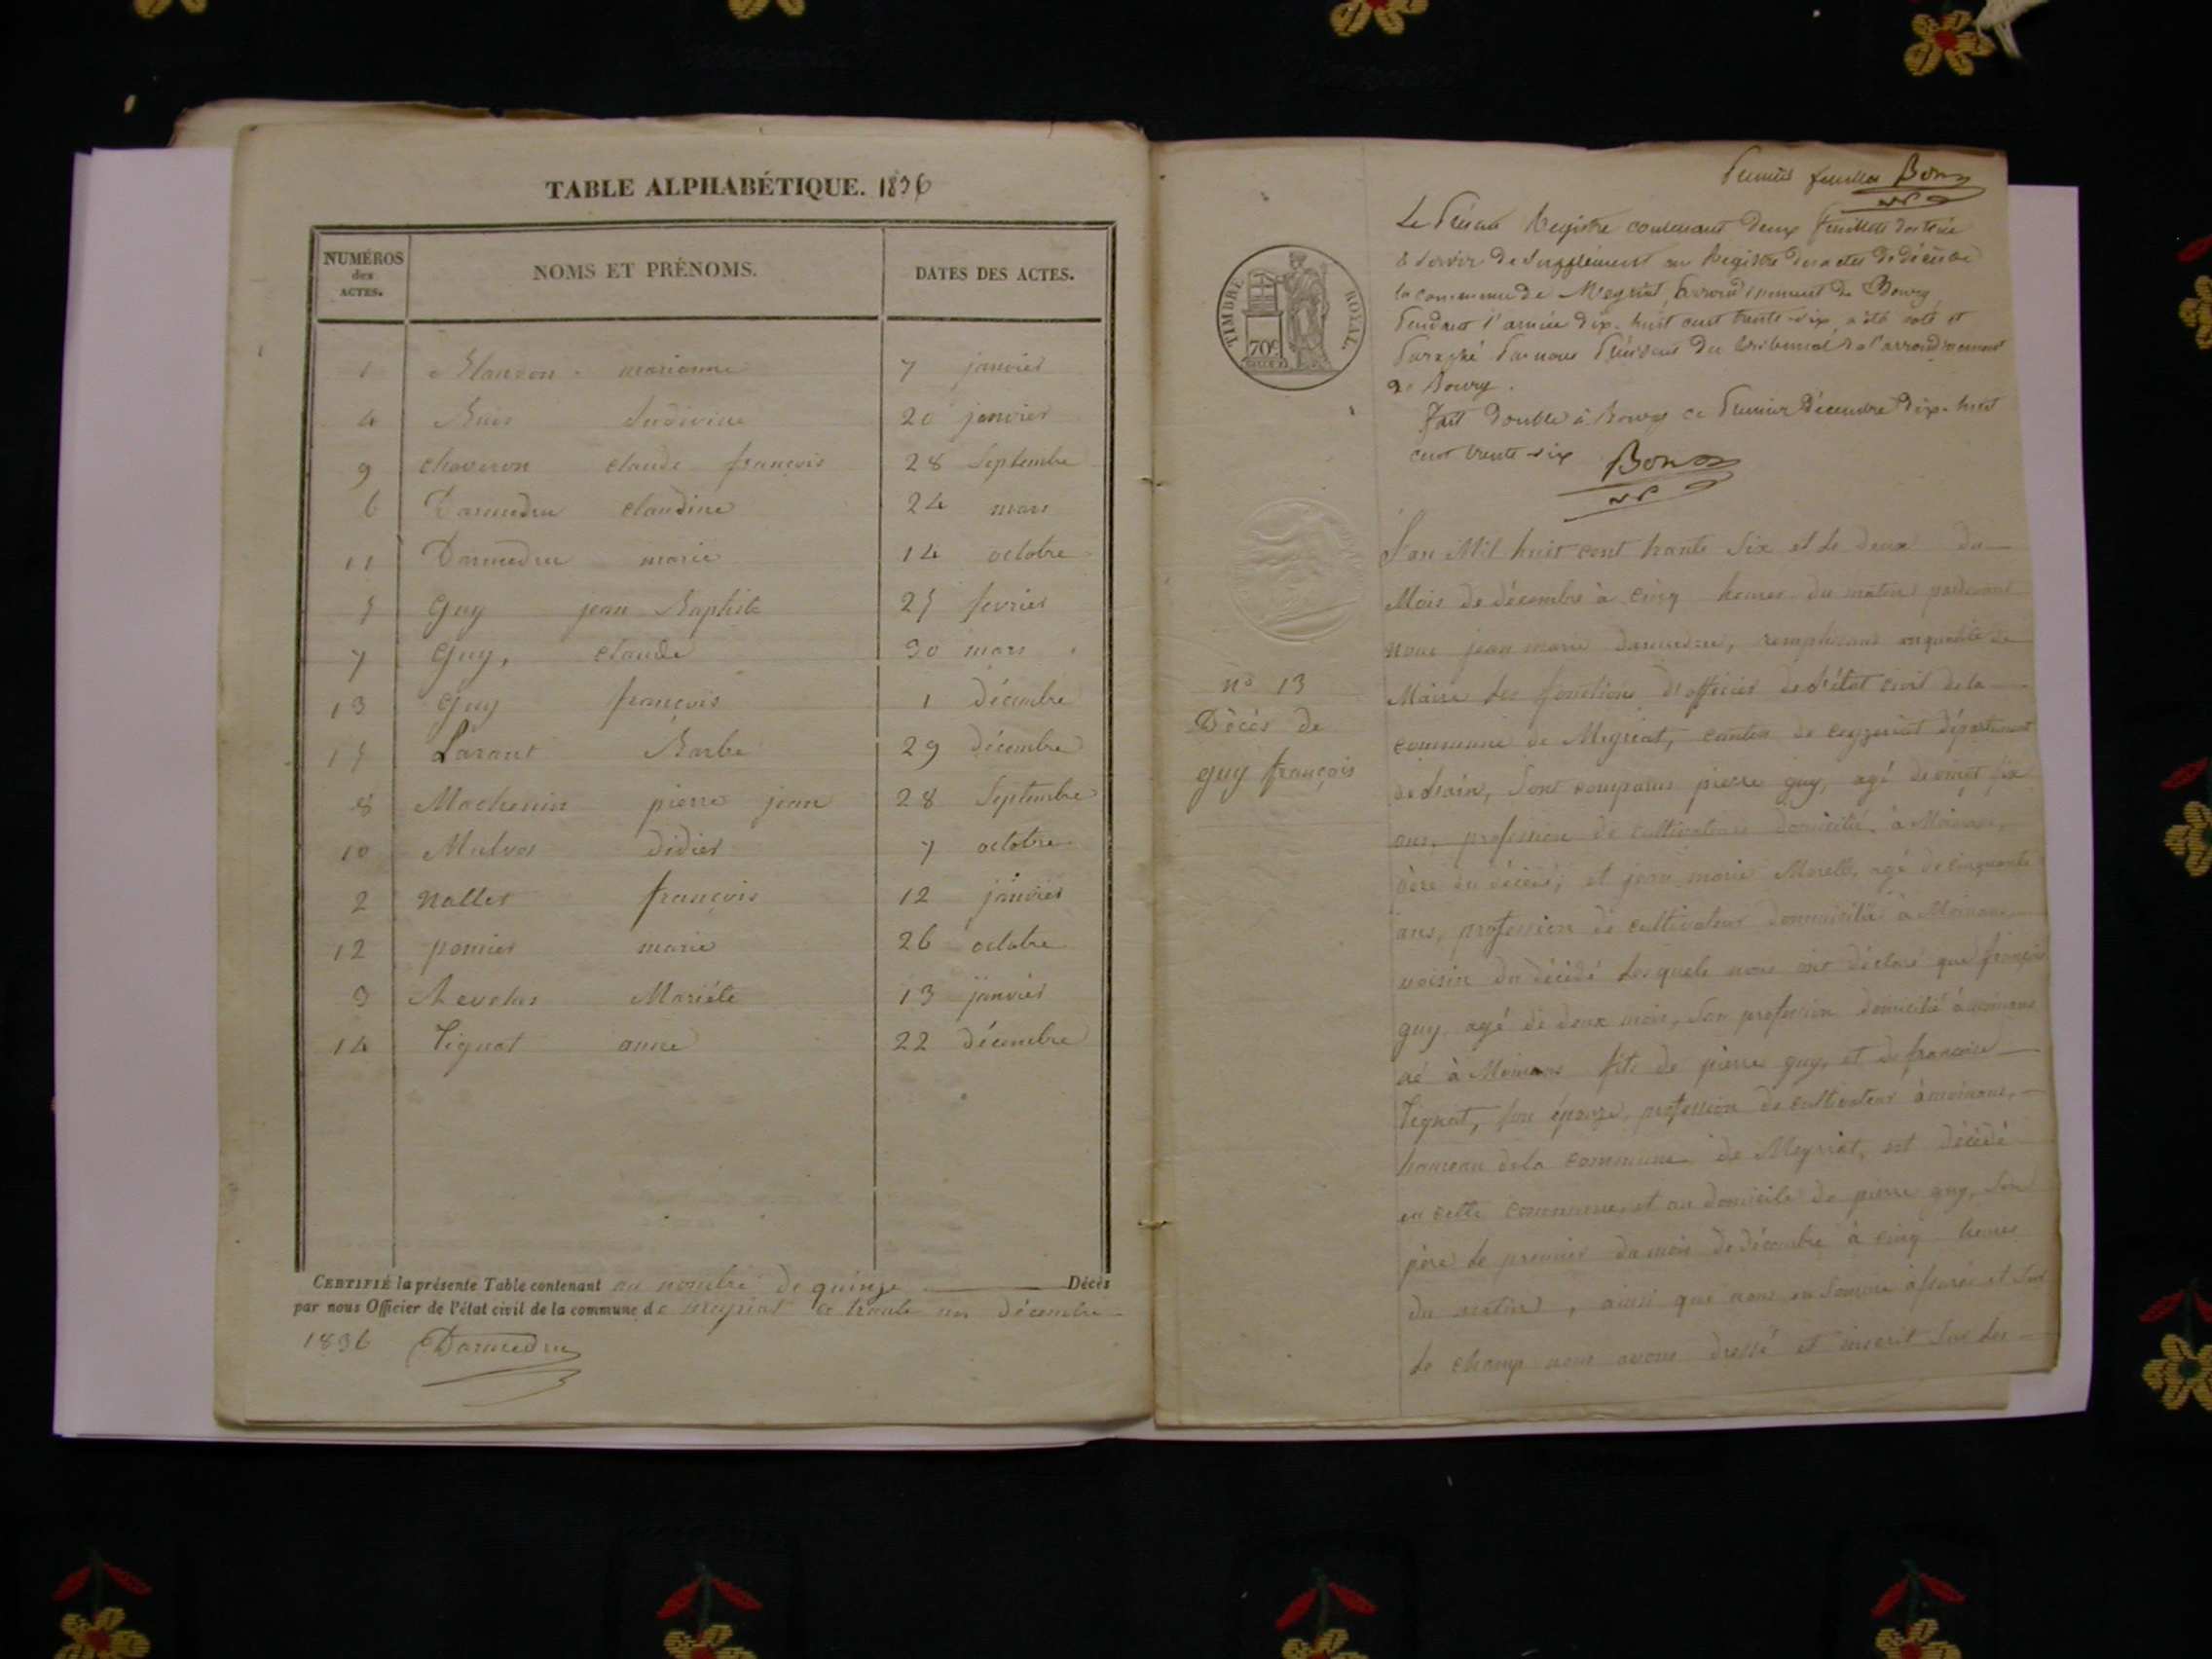 TABLE ALPHABÉTIQUE. 1836
NUMÉROS des ACTES. NOMS ET PRÉNOMS. DATES DES ACTES.
1 Blandon marianne 7 janvier
4 Buis Ludivine 20 janvier
9 chaveron claude françois 28 Septembre
6 Darmedru claudine 24 mars
11 Darmedru marie 14 octobre
5 Guy jean Baptiste 25 fevrier
7 Guy, claude 30 mars
13 Guy françois 1 décembre
15 Larant Barbe 29 décembre
8 Mochenin pierre jean 28 Septembre
10 didier 7 octobre
2 nallet françois 12 janvier
12 pomier marie 26 octobre
3 Revelas Mariéte 13 janvier
14 Tignat anne 22 décembre
CERTIFIÉ la présente Table contenant au nombre de quinze Décès
par nous Officier de l'état civil de la commune de meyriat ce trente un décembre
1836 Darmedru
Premier feuillet Bon
Le Présent Registre contenant deux feuillets destiné
à Servir de Supplément au Registre des actes de décès de
la commune de Meyriat, arrondissement de Bourg
Pendant l'année dix-huit cent trente-six, a été coté et
Paraphé Par nous Président du tribunal de l'arrondissement
de Bourg.
Fait double à Bourg ce Premier Décembre dix-huit
cent trente-six Bon
TIMBRE ROYAL.
70c
n° 13
Décès de
guy françois
L'an Mil huit cent trante Six et le deux du
Mois de décembre à cinq heures du matin pardevant
nous jean marie darmedru, remplissant en qualité de
Maire les fonctions d'officier de l'état civil de la
commune de Meyriat, canton de ceyzeriat département
de Lain, Sont comparus pierre guy, agé de vingt Six
ans, profession de cultivateur domicilié à Moinans,
père du décédé; et jean marie Morelle, agé de cinquante
ans, profession de cultivateur dommicilié à Moinans
voisin du décédé Lesquels nous ont déclaré que françois
guy, agé de deux mois, San profession domicilié à moinans
né à Moinans fils de pierre guy, et de francoise
Tignat, Son épouze, profession de cultivateur à moinans,
hameau de la commune de Meyriat, est décédé
en cette commune, et au domicile de pierre guy, Son
père Le premier du mois de décembre à cinq heures
du matin, ainsi que nous en Somme assurés et Sur
Le champ nous avons dressé et inscrit Sur Les